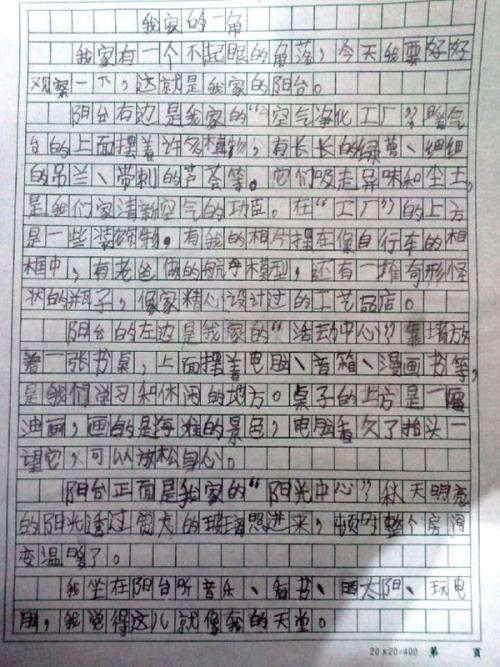 我家的一角
我家有一个不起眼的角落，今天我要好好
观察一下，这就是我家的阳台。
阳台右边是我家的“空气净化工厂”，暖气
台的上面摆着许多植物，有长长的绿萝、细细
的吊兰、带刺的芦荟等。它们吸走异味和尘土，
是我们家清新空气的功臣。在“工厂”的上方
是一些装饰物。有我的相片摆在像自行车的相
框中，有老爸做的航母模型，还有一堆奇形怪
状的瓶子，像家精心设计过的工艺品店。
阳台的左边是我家的“活动中心”，靠墙放
着一张书桌，上面摆着电脑、音箱、漫画书等，
是我们学习和休闲的地方。桌子的上方是一幅
油画，画的是海滩的景色，电脑看久了抬头一
望它，可以放松身心。
阳台正面是我家的“阳光中心”，秋天明亮
的阳光透过宽大的玻璃照进来，顿时整个房间
变温暖了。
我坐在阳台听音乐、看书、晒太阳、玩电
脑，我觉得这儿就像我的天堂。
20×20=400 第 页